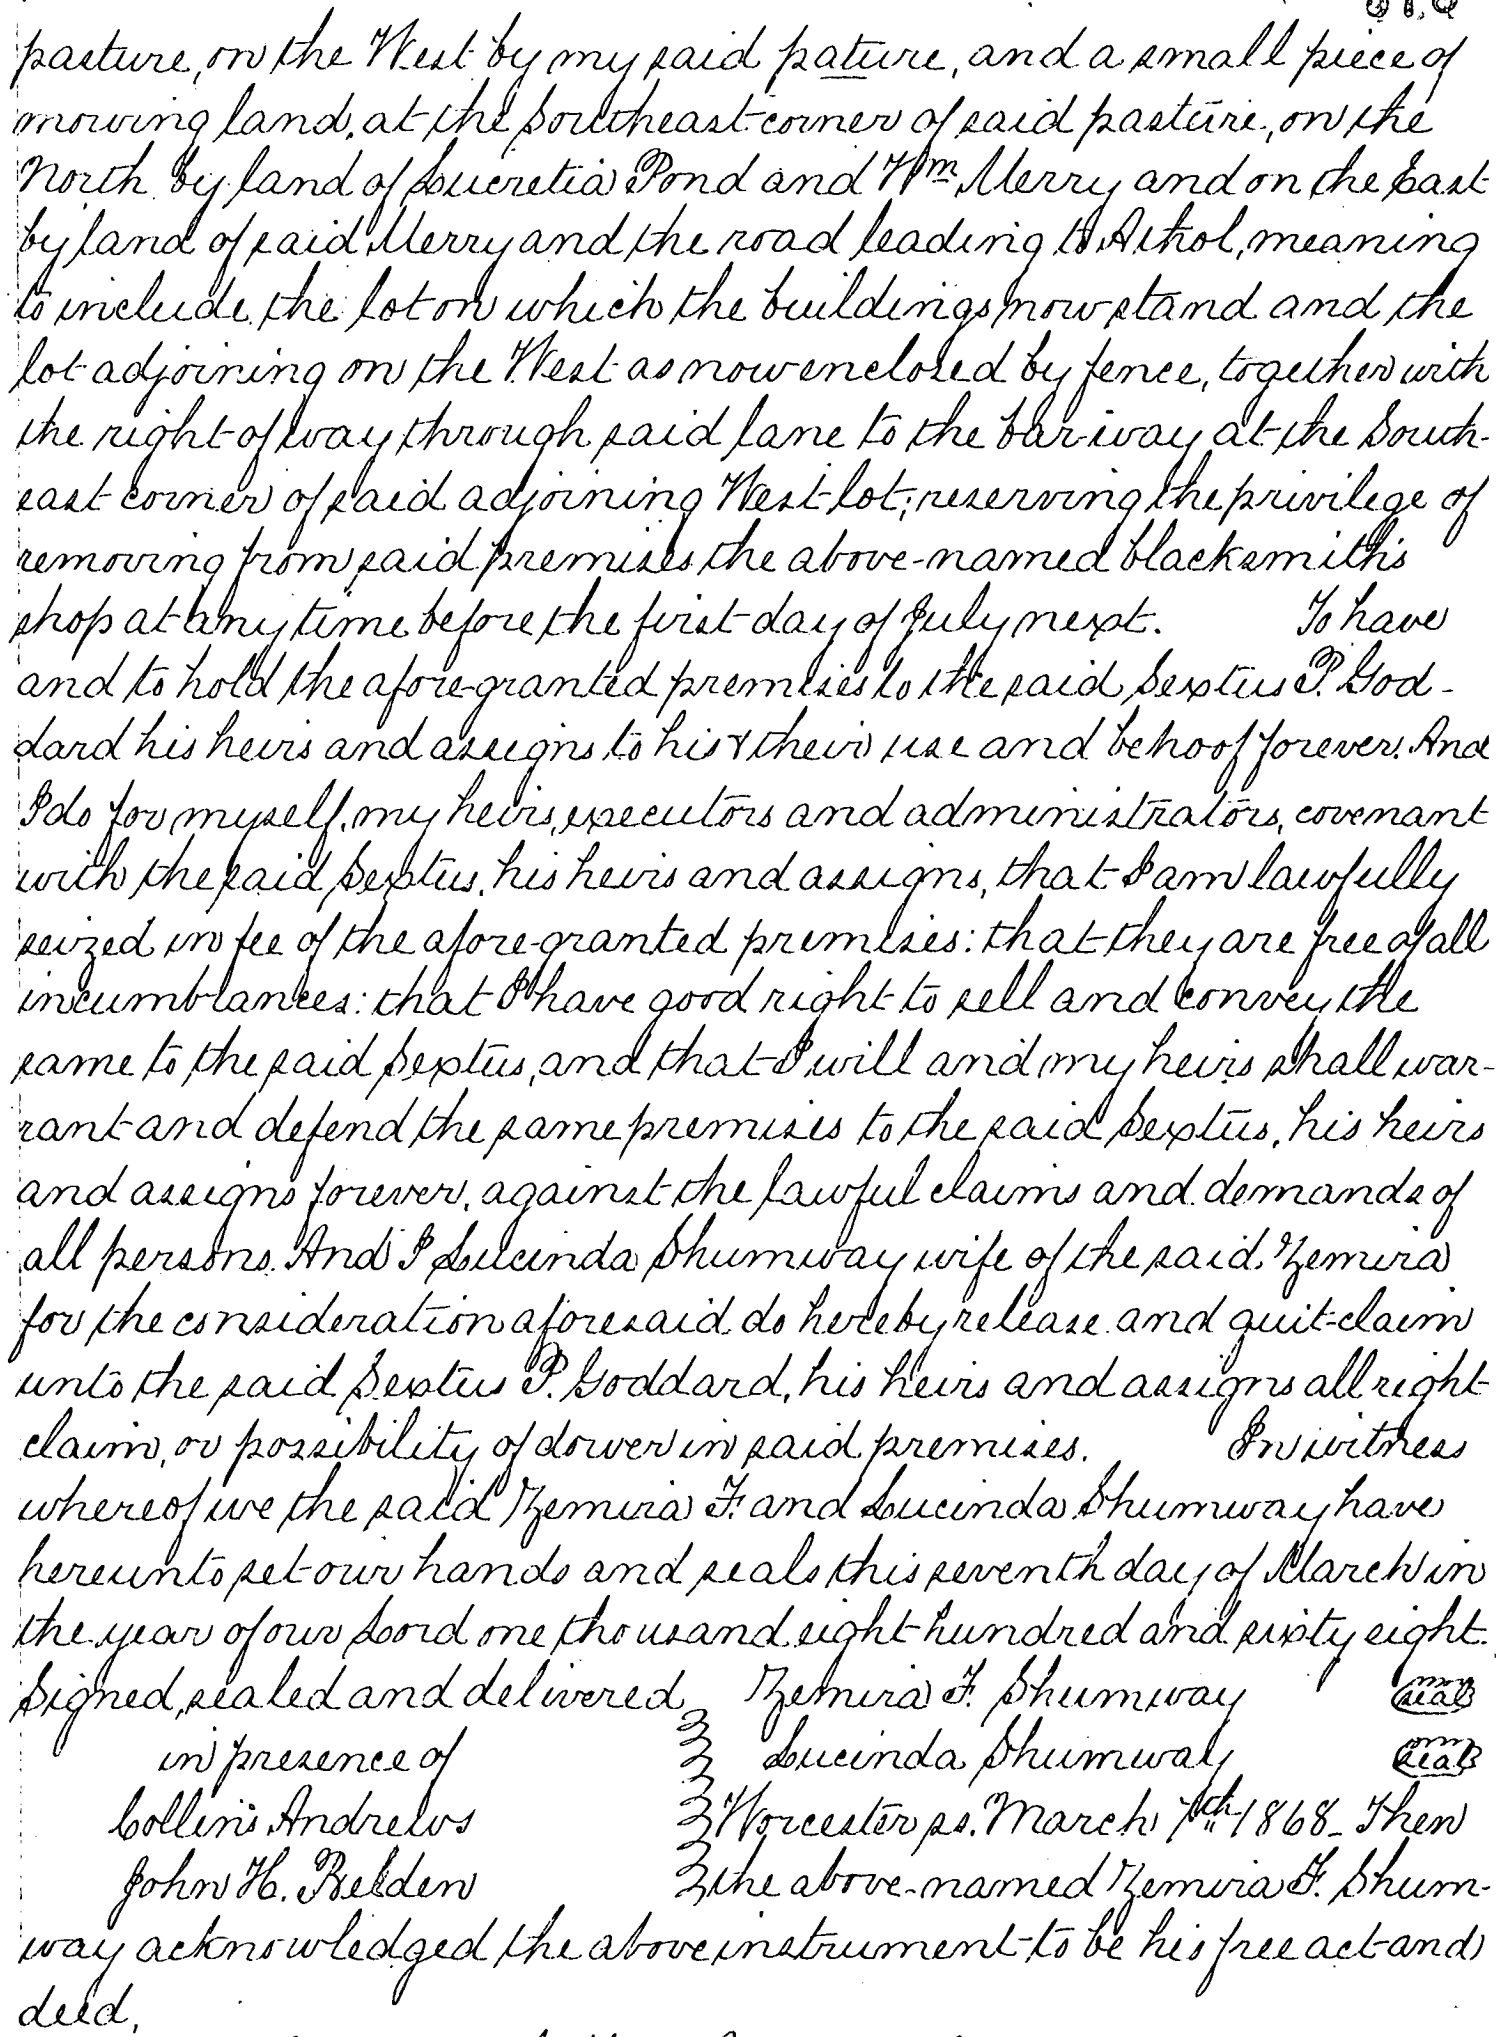 pasture, on the West by my said pature, and a small piece of
mowing land, at the Southeast corner of said pasture, on the
North by land of Lucretia Pond and Wm Merry and on the East
by land of said Merry and the road leading to Athol, meaning
to include the lot on which the buildings now stand and the
lot adjoining on the West as now enclosed by fence, together with
the right of way through said lane to the bar-way at the South-
east corner of said adjoining West lot; reserving the privilege of
removing from said premises the above-named blacksmith's
shop at any time before the first day of July next. To have
and to hold the afore-granted premises to the said Sextus P. God-
dard his heirs and assigns to his & their use and behoof forever. And
I do for myself, my heirs, executors and administrators, covenant
with the said Sextus, his heirs and assigns, that I am lawfully
seized in fee of the afore-granted premises: that they are free of all
incumbrances: that I have good right to sell and convey the
same to the said Sextus, and that I will and my heirs shall war-
rant and defend the same premises to the said Sextus, his heirs
and assigns forever, against the lawful claims and demands of
all persons. And I Lucinda Shumway wife of the said Zemira
for the consideration aforesaid do hereby release and quit-claim
unto the said Sextus P. Goddard, his heirs and assigns all right
claim, or possibility of dower in said premises. In witness
whereof we the said Zemira F. and Lucinda Shumway have
hereunto set our hands and seals this seventh day of March in
the year of our Lord one thousand eight hundred and sixty eight.
Signed, sealed and delivered Zemira F. Shumway seal
in presence of Lucinda Shumway seal
Collins Andrews Worcester ss. March 7th 1868_ Then
John H. Belden the above-named Zemira F. Shum-
way acknowledged the above instrument to be his free act and
deed,